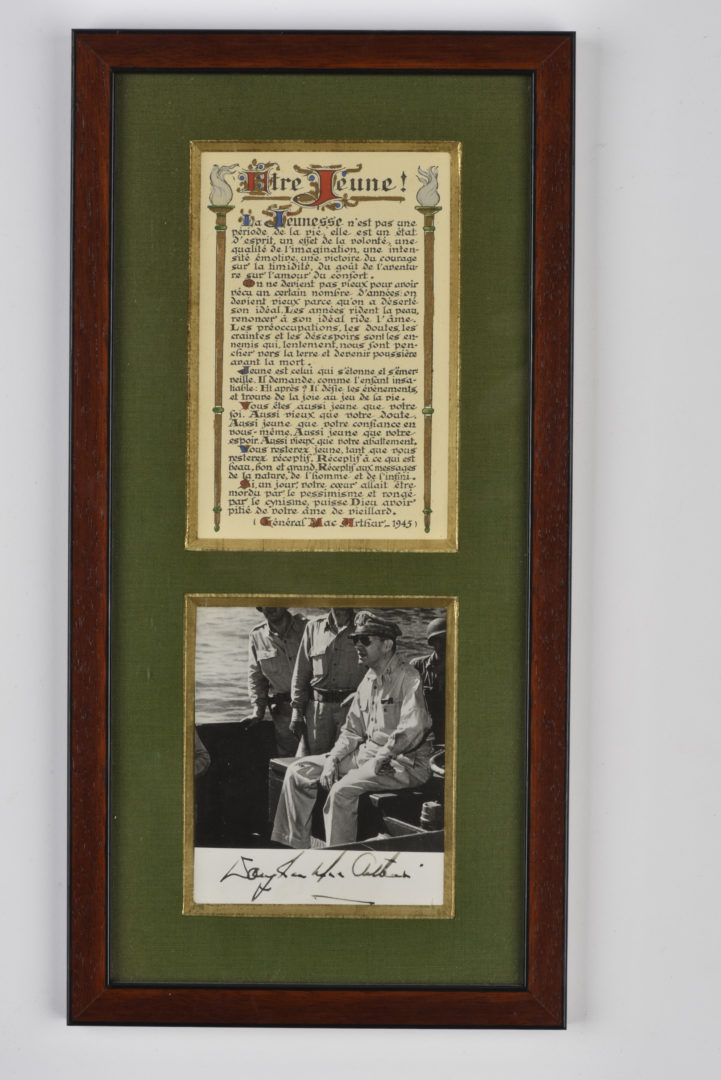 Etre Jeune !
La Jeunesse n'est pas une
période de la vie, elle est un état
d'esprit, un effet de la volonté, une
qualité de l'imagination, une inten-
sité émotive, une victoire du courage
sur la timidité, du goût de l'aventu-
re sur l'amour du confort.
On ne devient pas vieux pour avoir
vécu un certain nombre d'années on
devient vieux parce qu'on a déserté
son idéal. Les années rident la peau,
renoncer à son idéal ride l'âme.
Les préoccupations, les doutes, les
craintes et les désespoirs sont les en-
nemis qui, lentement, nous font pen-
cher vers la terre et devenir poussière
avant la mort.
Jeune est celui qui s'étonne et s'émer-
veille. Il demande, comme l'enfant insa-
tiable : Et après ? Il défie les événements,
et trouve de la joie au jeu de la vie.
Vous êtes aussi jeune que votre
foi. Aussi vieux que votre doute.
Aussi jeune que votre confiance en
vous-même. Aussi jeune que votre
espoir. Aussi vieux que votre abattement.
Vous resterez jeune, tant que vous
resterez réceptif. Réceptif à ce qui est
beau, bon et grand. Réceptif aux messages
de la nature, de l'homme et de l'infini.
Si, un jour, votre cœur allait être
mordu par le pessimisme et rongé
par le cynisme, puisse Dieu avoir
pitié de votre âme de vieillard.
(Général Mac Arthur - 1945)
Douglas MacArthur